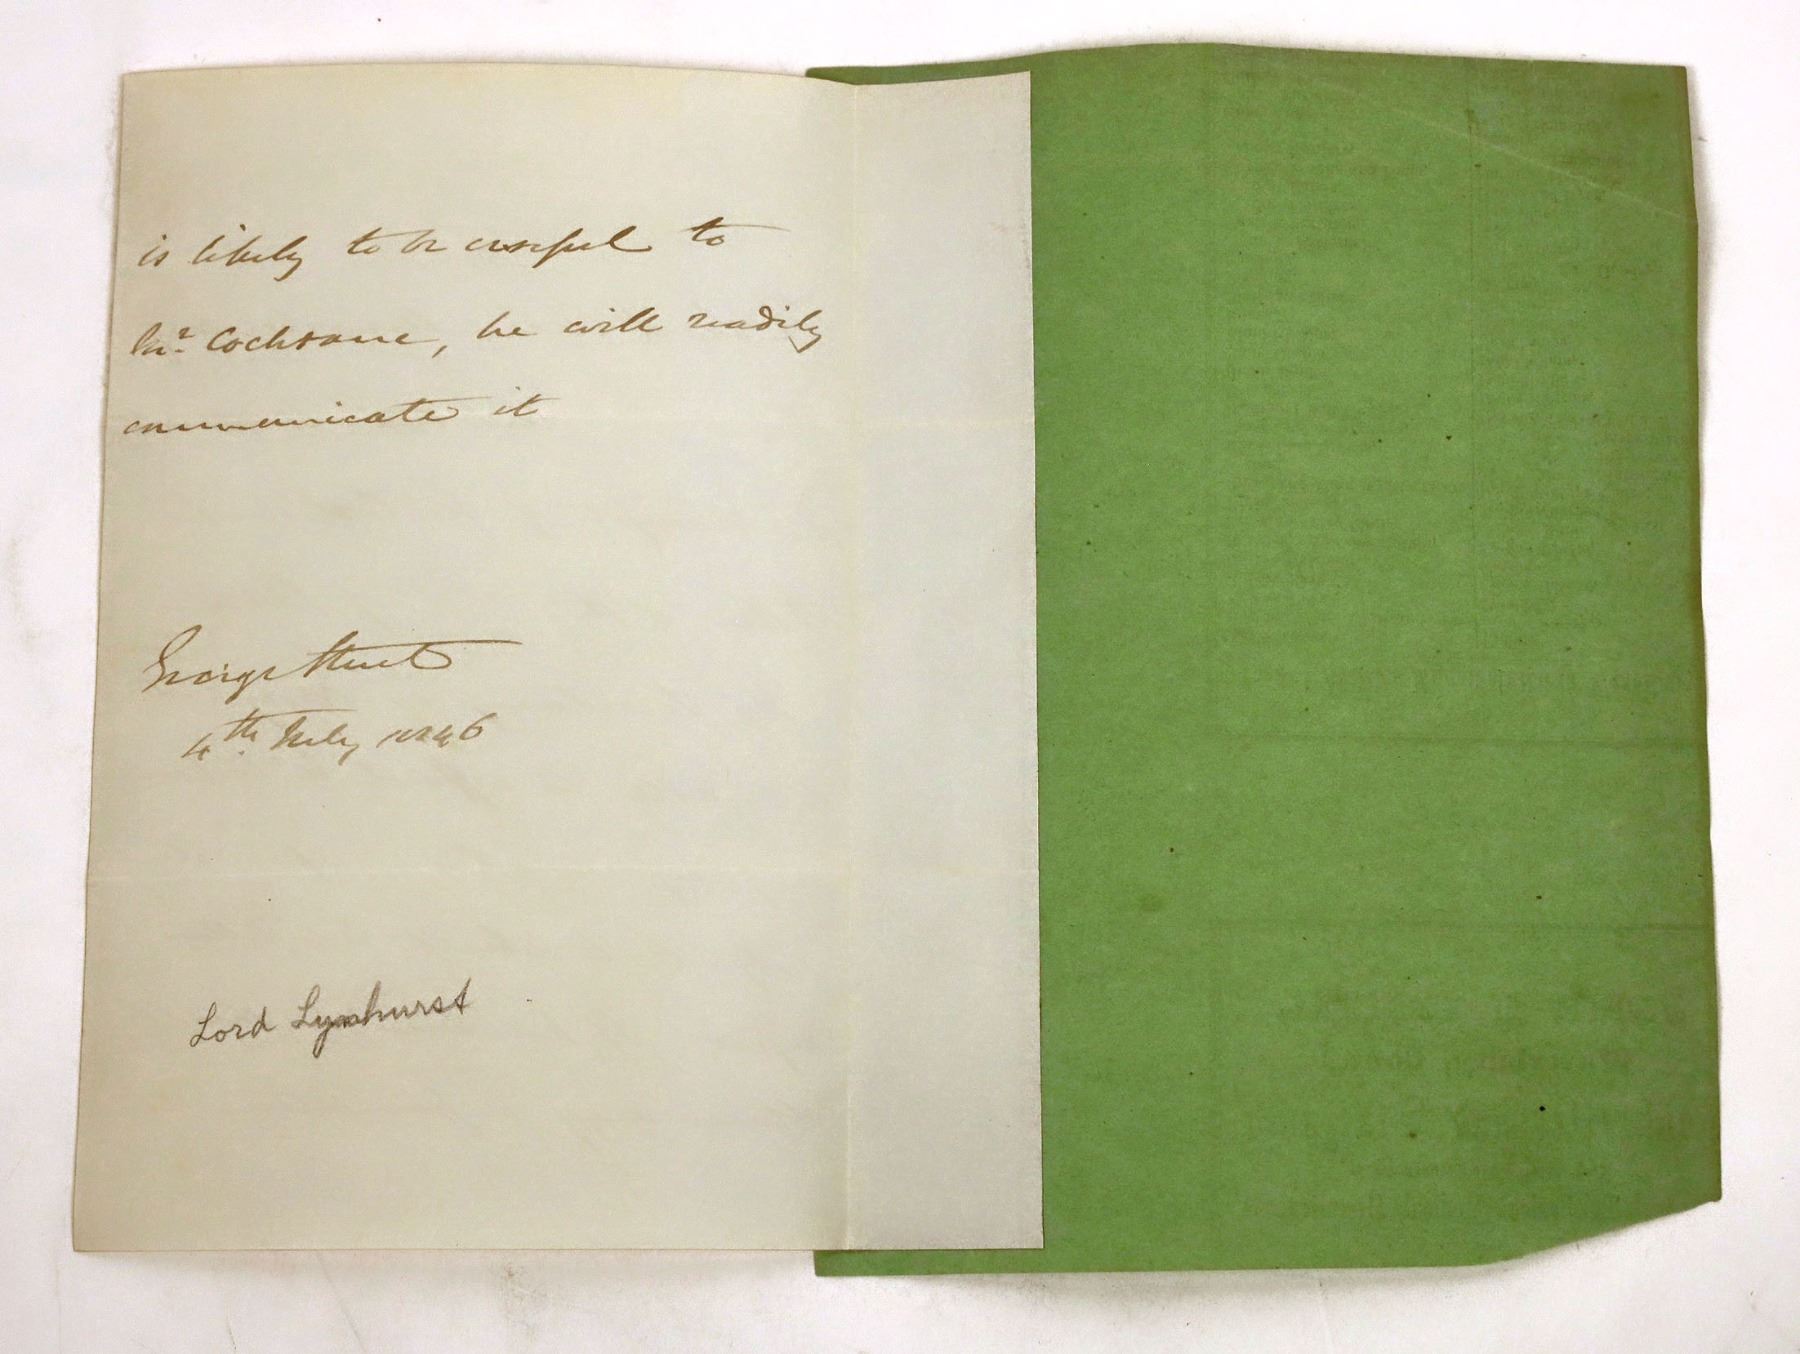 is likely to be useful to
Mr. Cochrane, he will readily
communicate it
George Street
4th July 1846
Lord Lynhurst